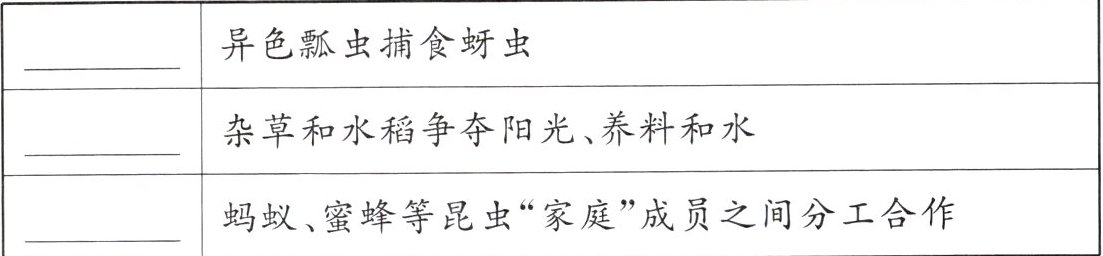 异色瓢虫捕食蚜虫
杂草和水稻争夺阳光、养料和水
蚂蚁、蜜蜂等昆虫“家庭”成员之间分工合作